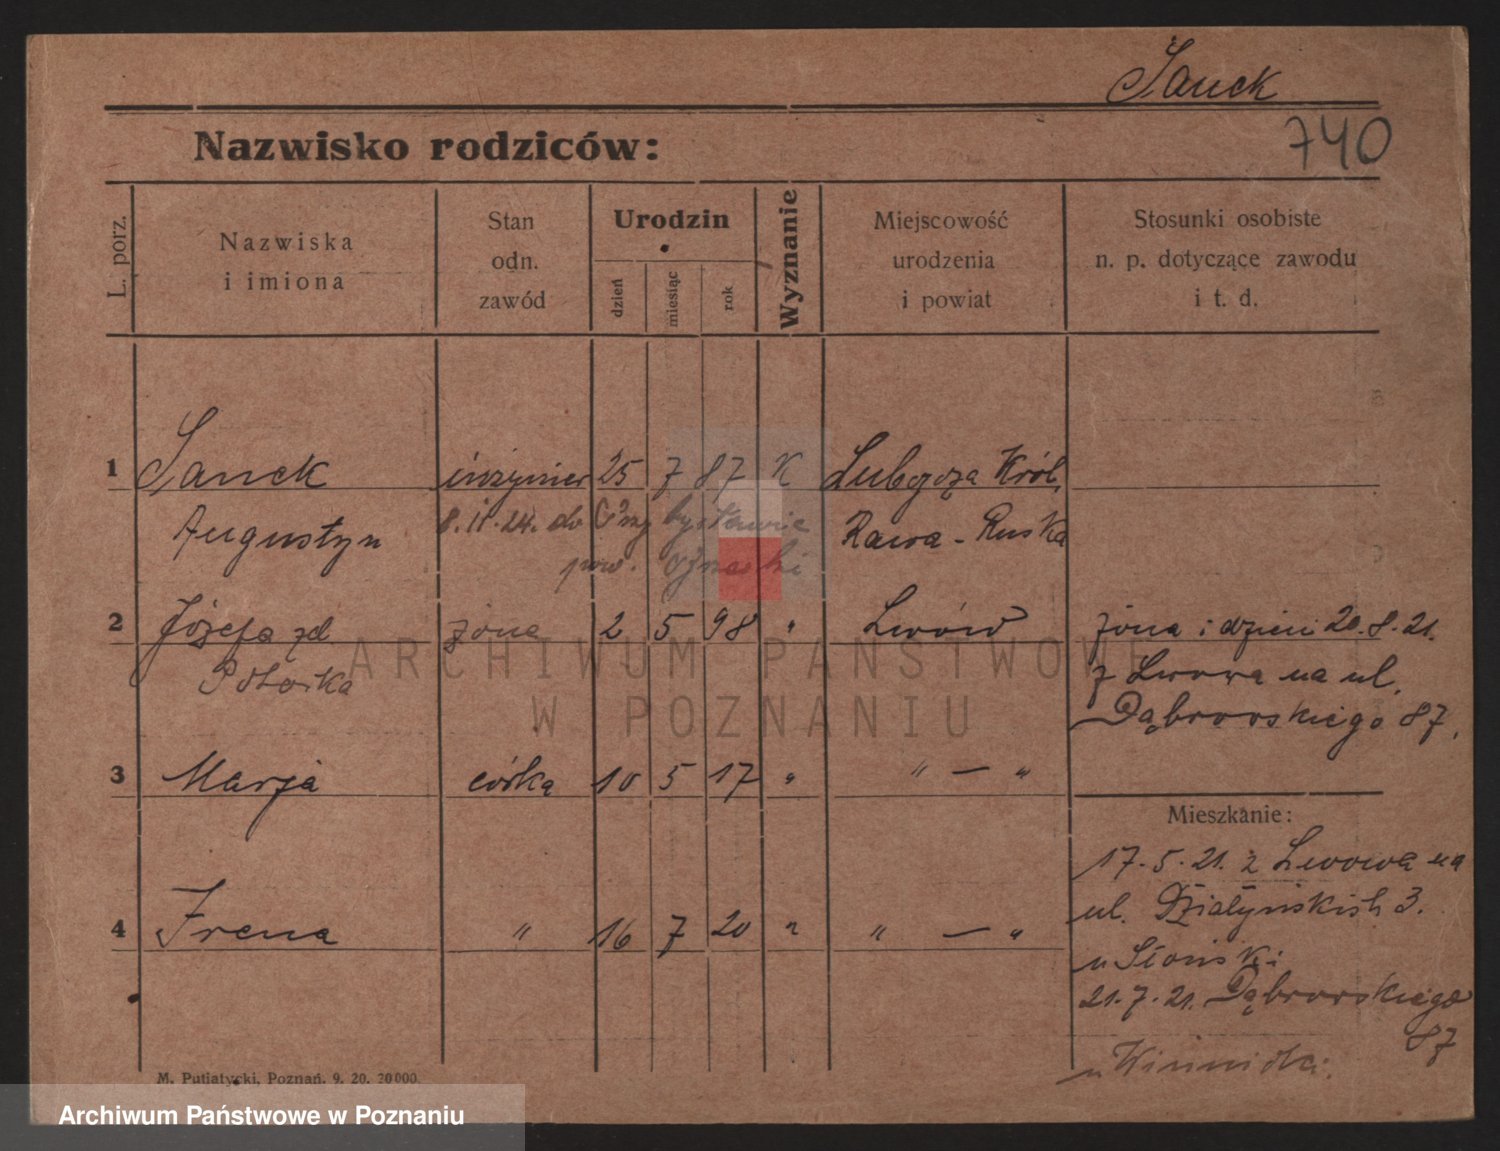 Sanek
740
Nazwisko rodziców:
L. porz.
Nazwiska
i imiona
Stan
odn.
zawód
Urodzin
dzień
miesiąc
rok
Wyznanie
Miejscowość
urodzenia
i powiat
Stosunki osobiste
n. p. dotyczące zawodu
i t. d.
1 Sanek inżynier 25 7 87 K Lubycza Król.
Augustyn 8.II.24. do Rawa - Ruska
pow.
2 Józefa zd żona 2 5 98 " Lwów żona i dzieci 20.8.21.
z Lwowa na ul.
Dąbrowskiego 87.
3 Marja córka 10 5 17 " " — "
Mieszkanie:
17.5.21. z Lwowa na
ul. Działyńskich 3.
4 Irena " 16 7 20 " " — "
21.7.21. Dąbrowskiego
87
M. Putiatycki, Poznań. 9. 20. 20000.
ARCHIWUM PAŃSTWOWE
W POZNANIU
Archiwum Państwowe w Poznaniu